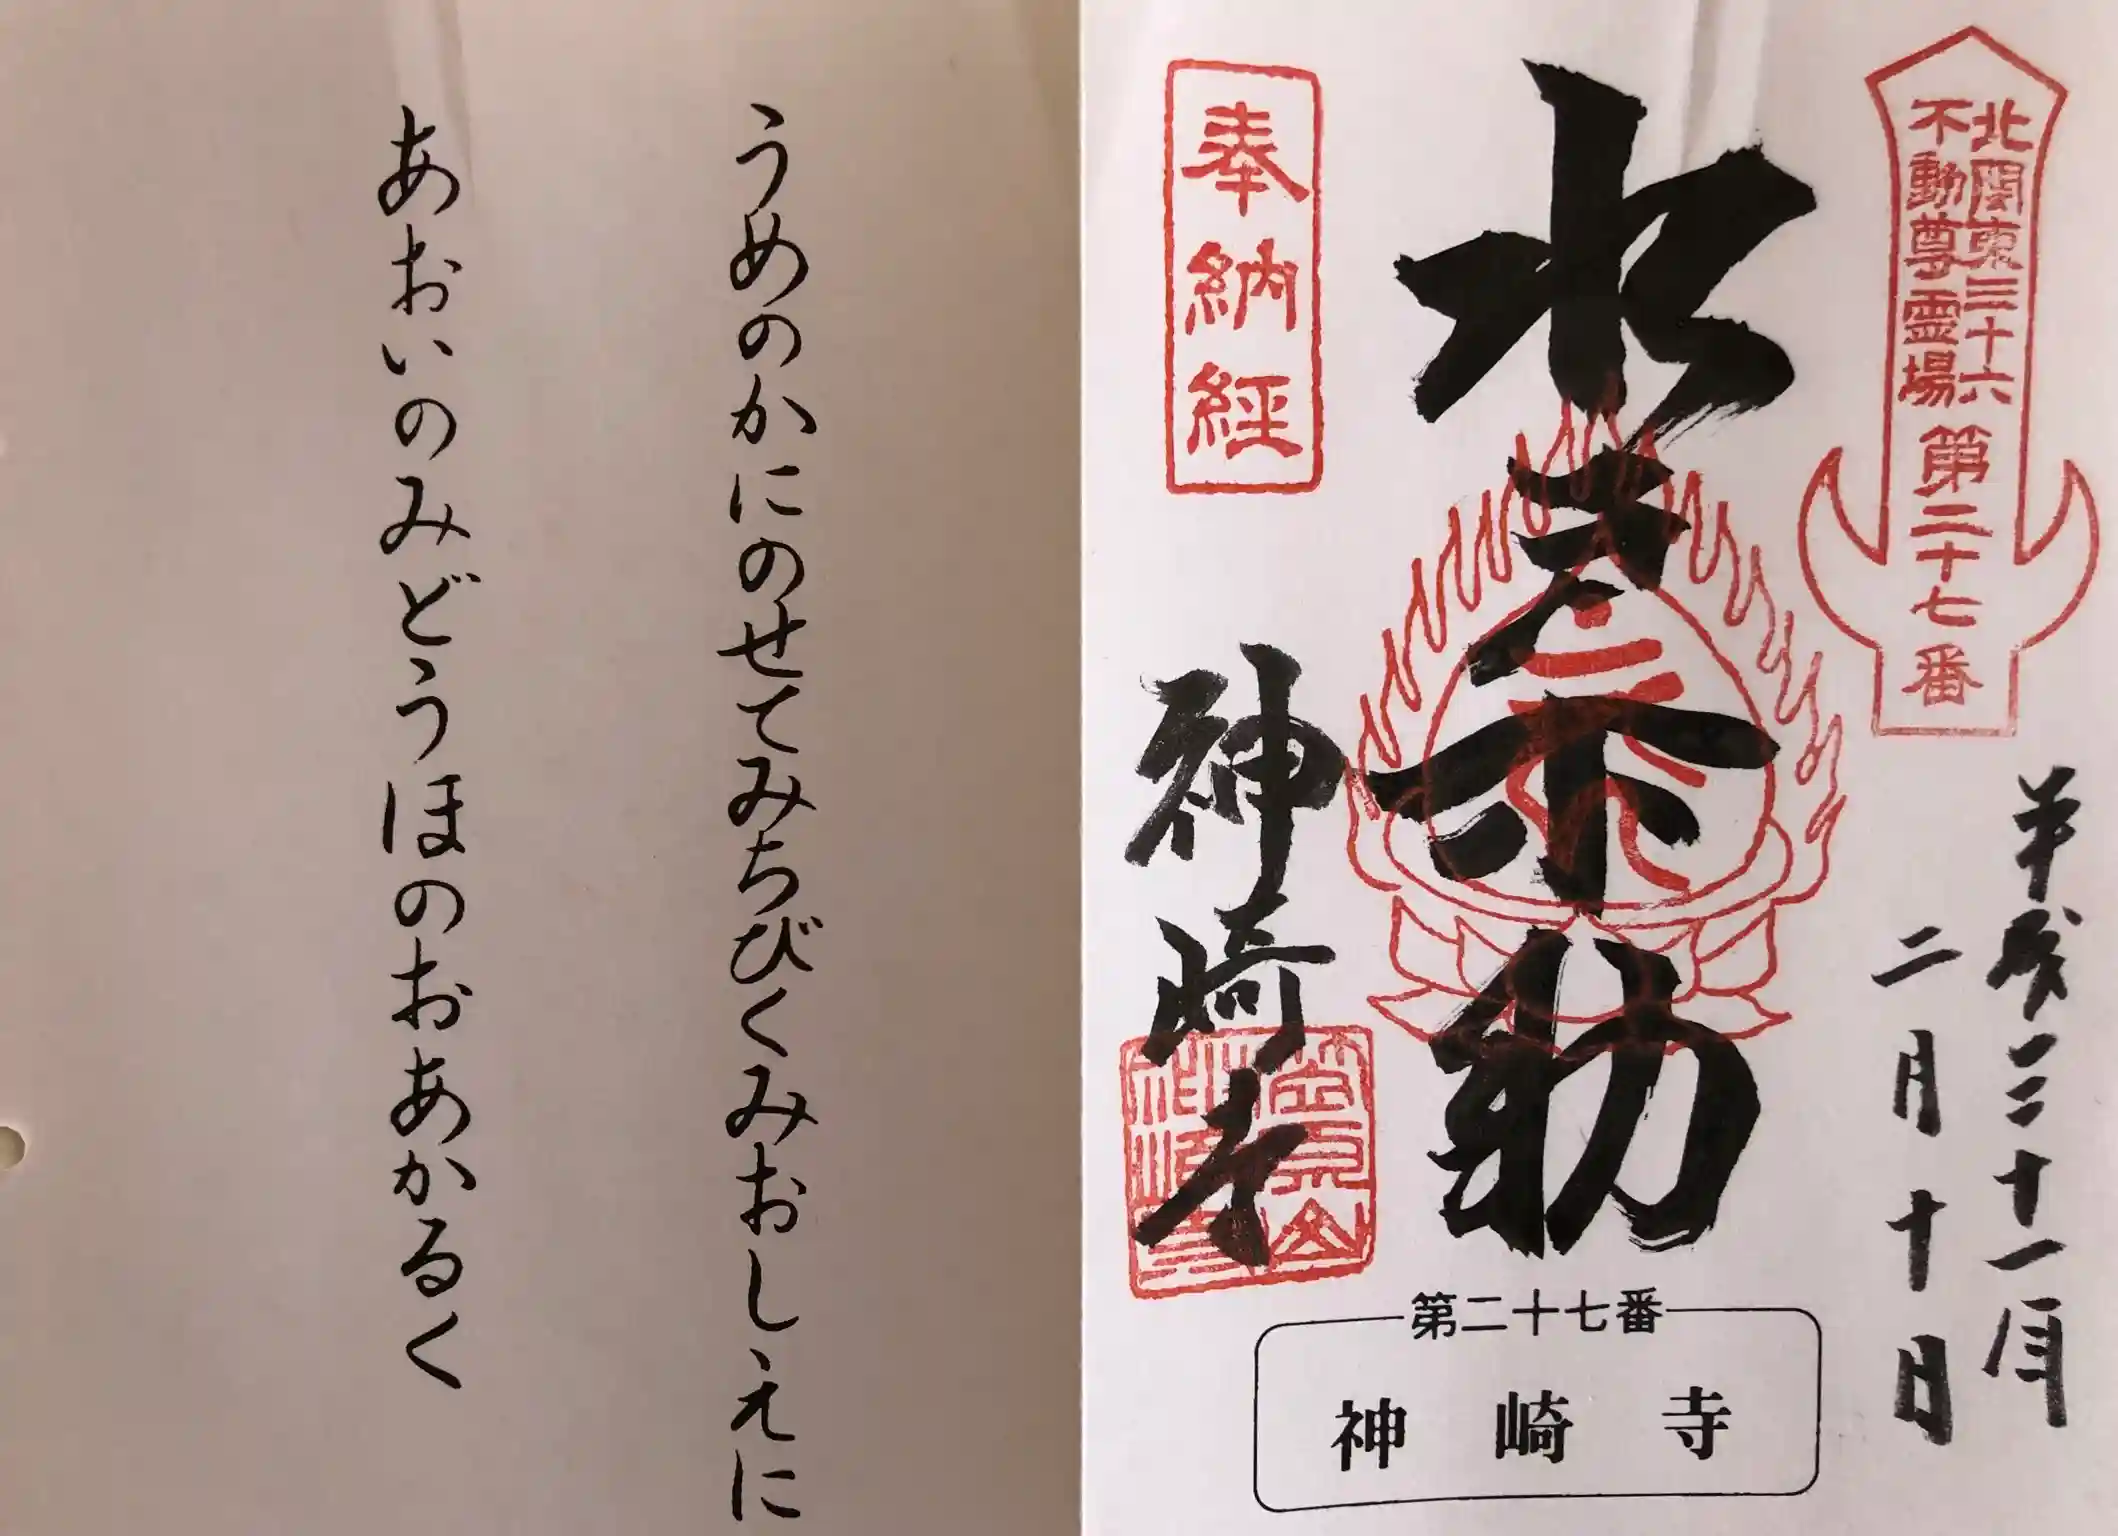 北関東三十六
不動尊霊場
第二十七番
平成三十一年
二月十日
水 不動
奉納経
神崎寺
第二十七番
神崎寺
うめのかにのせてみちびくみおしえに
あおいのみどうほのおあかるく